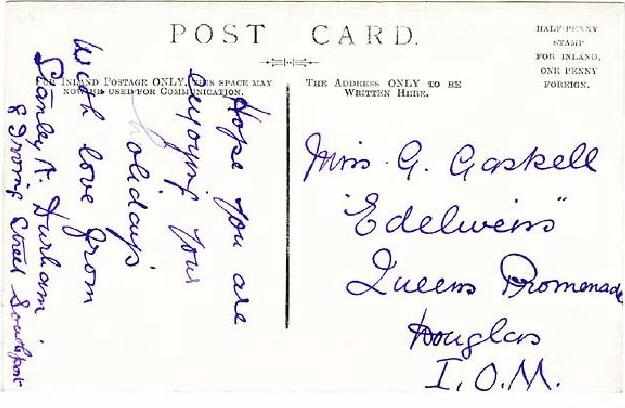 POST CARD.
HALF-PENNY
STAMP
FOR INLAND,
ONE PENNY
FOREIGN.
FOR INLAND POSTAGE ONLY, THIS SPACE MAY
NOW BE USED FOR COMMUNICATION.
THE ADDRESS ONLY TO BE
WRITTEN HERE.
Hope you are
enjoying your
holidays.
With love from
Stanley A. Durham.
8 Irving Street Southport
Miss G. Gaskell
"Edelweiss"
Queens Promenade
Douglas
I.O.M.